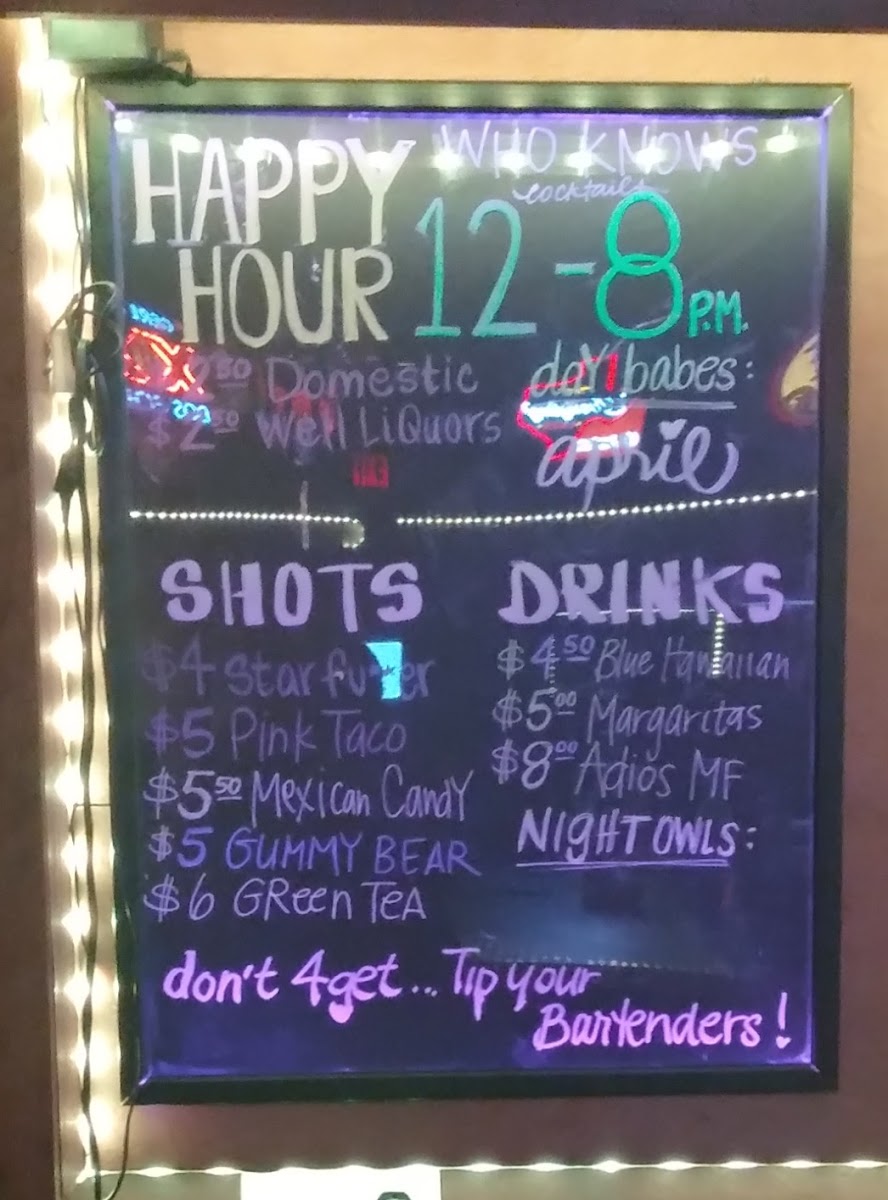 WHO KNOWS
cocktails
HAPPY
HOUR
12-8 P.M.
$2.50 Domestic
$2.50 Well LiQuors
day babes:
april
SHOTS
$4 Star
$5 Pink Taco
$5.50 Mexican Candy
$5 GUMMY BEAR
$6 GReen TeA
DRINKS
$4.50 Blue Hawaiian
$5.00 Margaritas
$8.00 Adios MF
NIGHT OWLS:
don't 4get... Tip your
Bartenders!